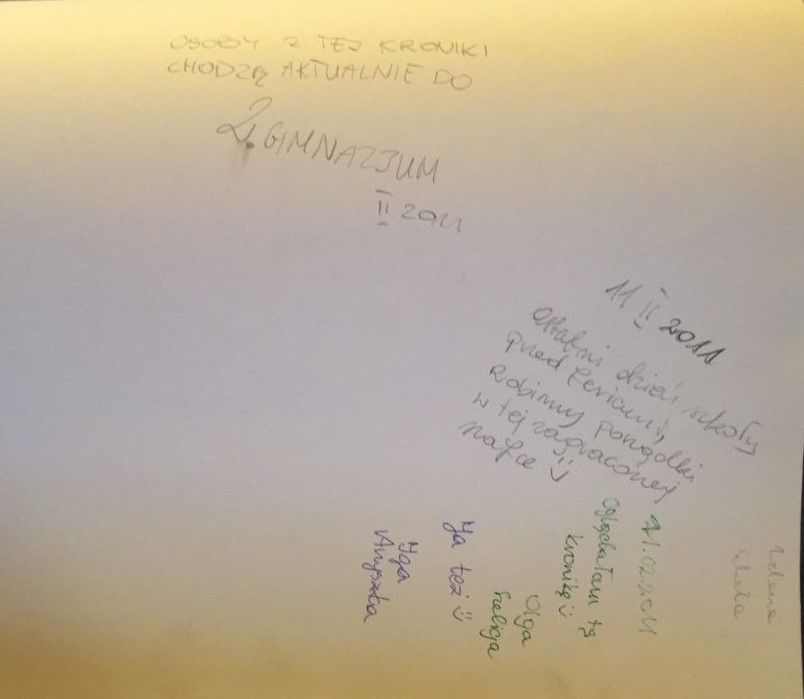 OSOBY Z TEJ KRONIKI
CHODZĄ AKTUALNIE DO
2. GIMNAZJUM
II 2011
11 II 2011
Ostatni dzień szkoły
przed feriami,
robimy porządki
w tej zagraconej
szafce :)
11.02.2011
Oglądałam tą
kronikę :)
Olga
Ja też :)
Iga